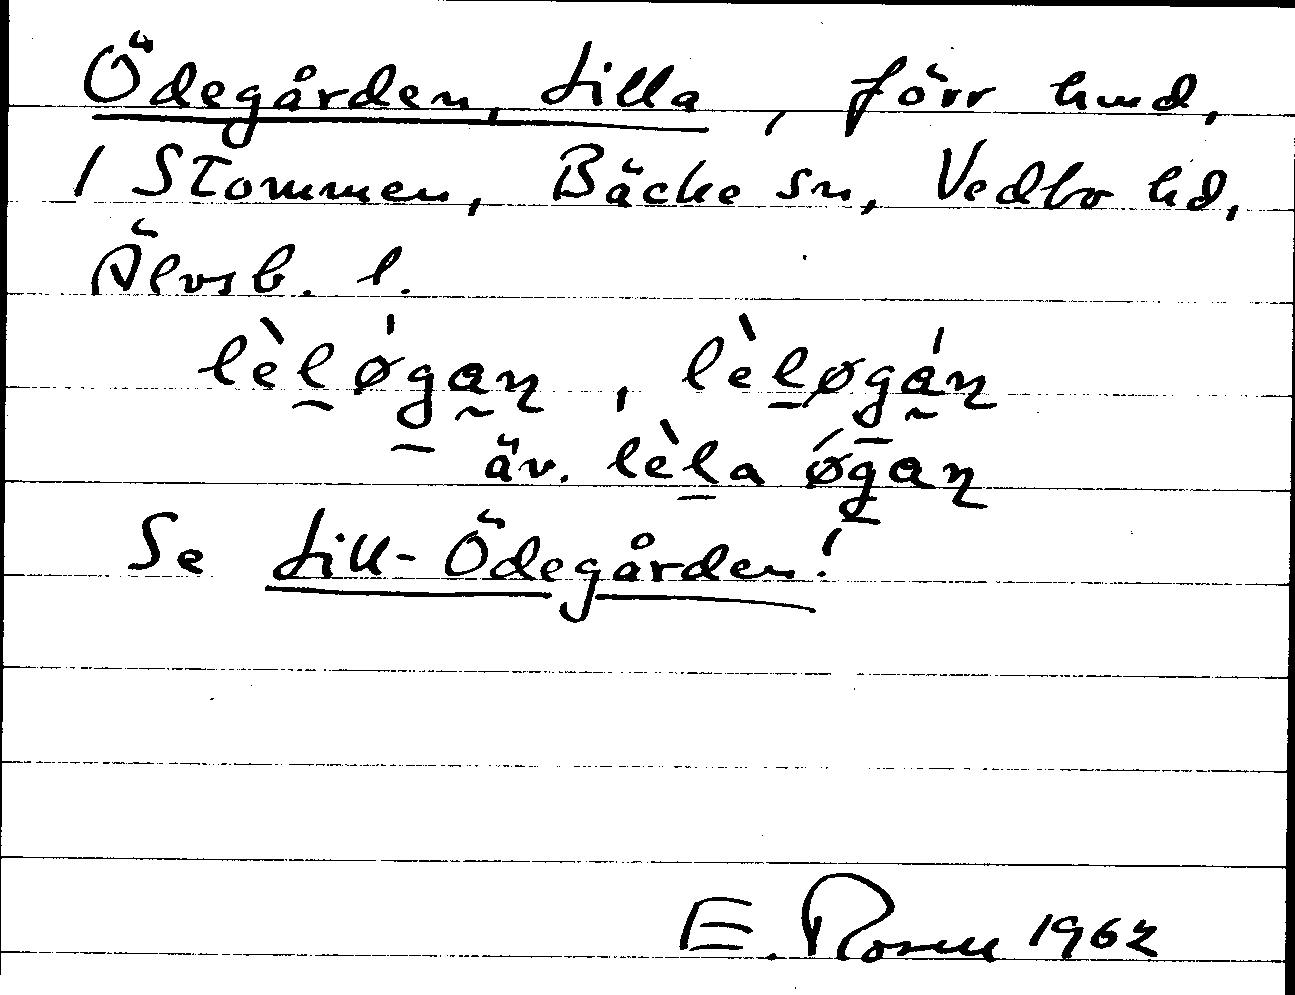 Ödegården, Lilla, förr hmd,
1 Stommen, Bäcke sn, Vedbo hd,
Älvsb. l.
lèḻǿg̱a̰ɳ, lèḻøg̱á̰ɳ
äv. lèḻa ǿg̱aɳ
Se Lill-Ödegården!
E. Rosen 1962